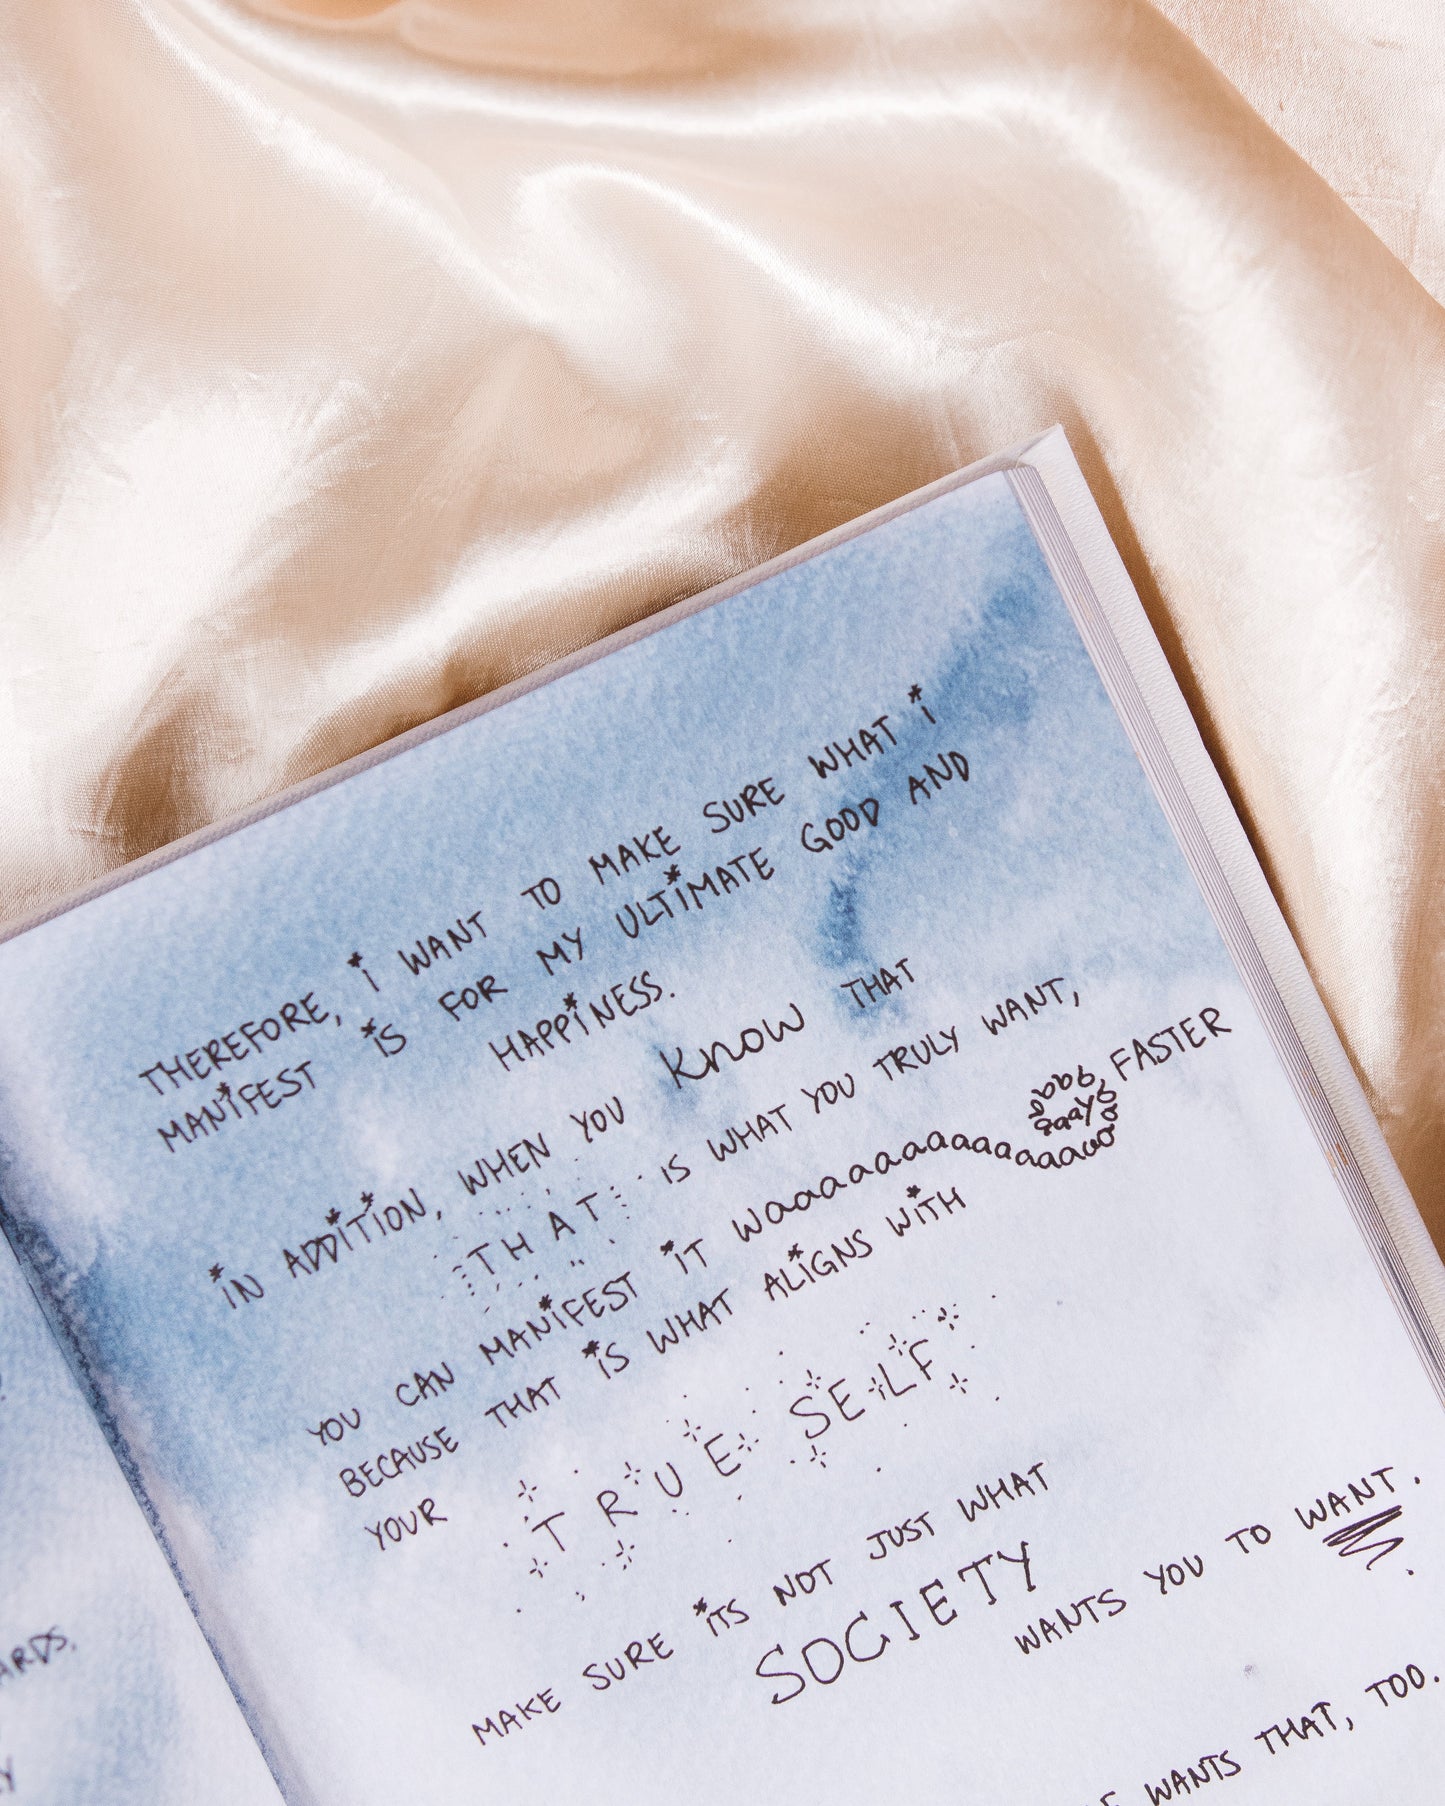 THEREFORE, i WANT TO MAKE SURE WHAT i
MANiFEST iS FOR MY ULTiMATE GOOD AND
HAPPiNESS.
iN ADDiTiON, WHEN YOU Know THAT
THAT IS WHAT YOU TRULY WANT,
YOU CAN MANiFEST iT waaaaaaaaaaaaaaaaaaaaaaaay FASTER
BECAUSE THAT iS WHAT ALiGNS WiTH
YOUR TRUE SELF
MAKE SURE iTS NOT JUST WHAT
SOCIETY
WANTS YOU TO WANT.
WANTS THAT, TOO.
ARDS.